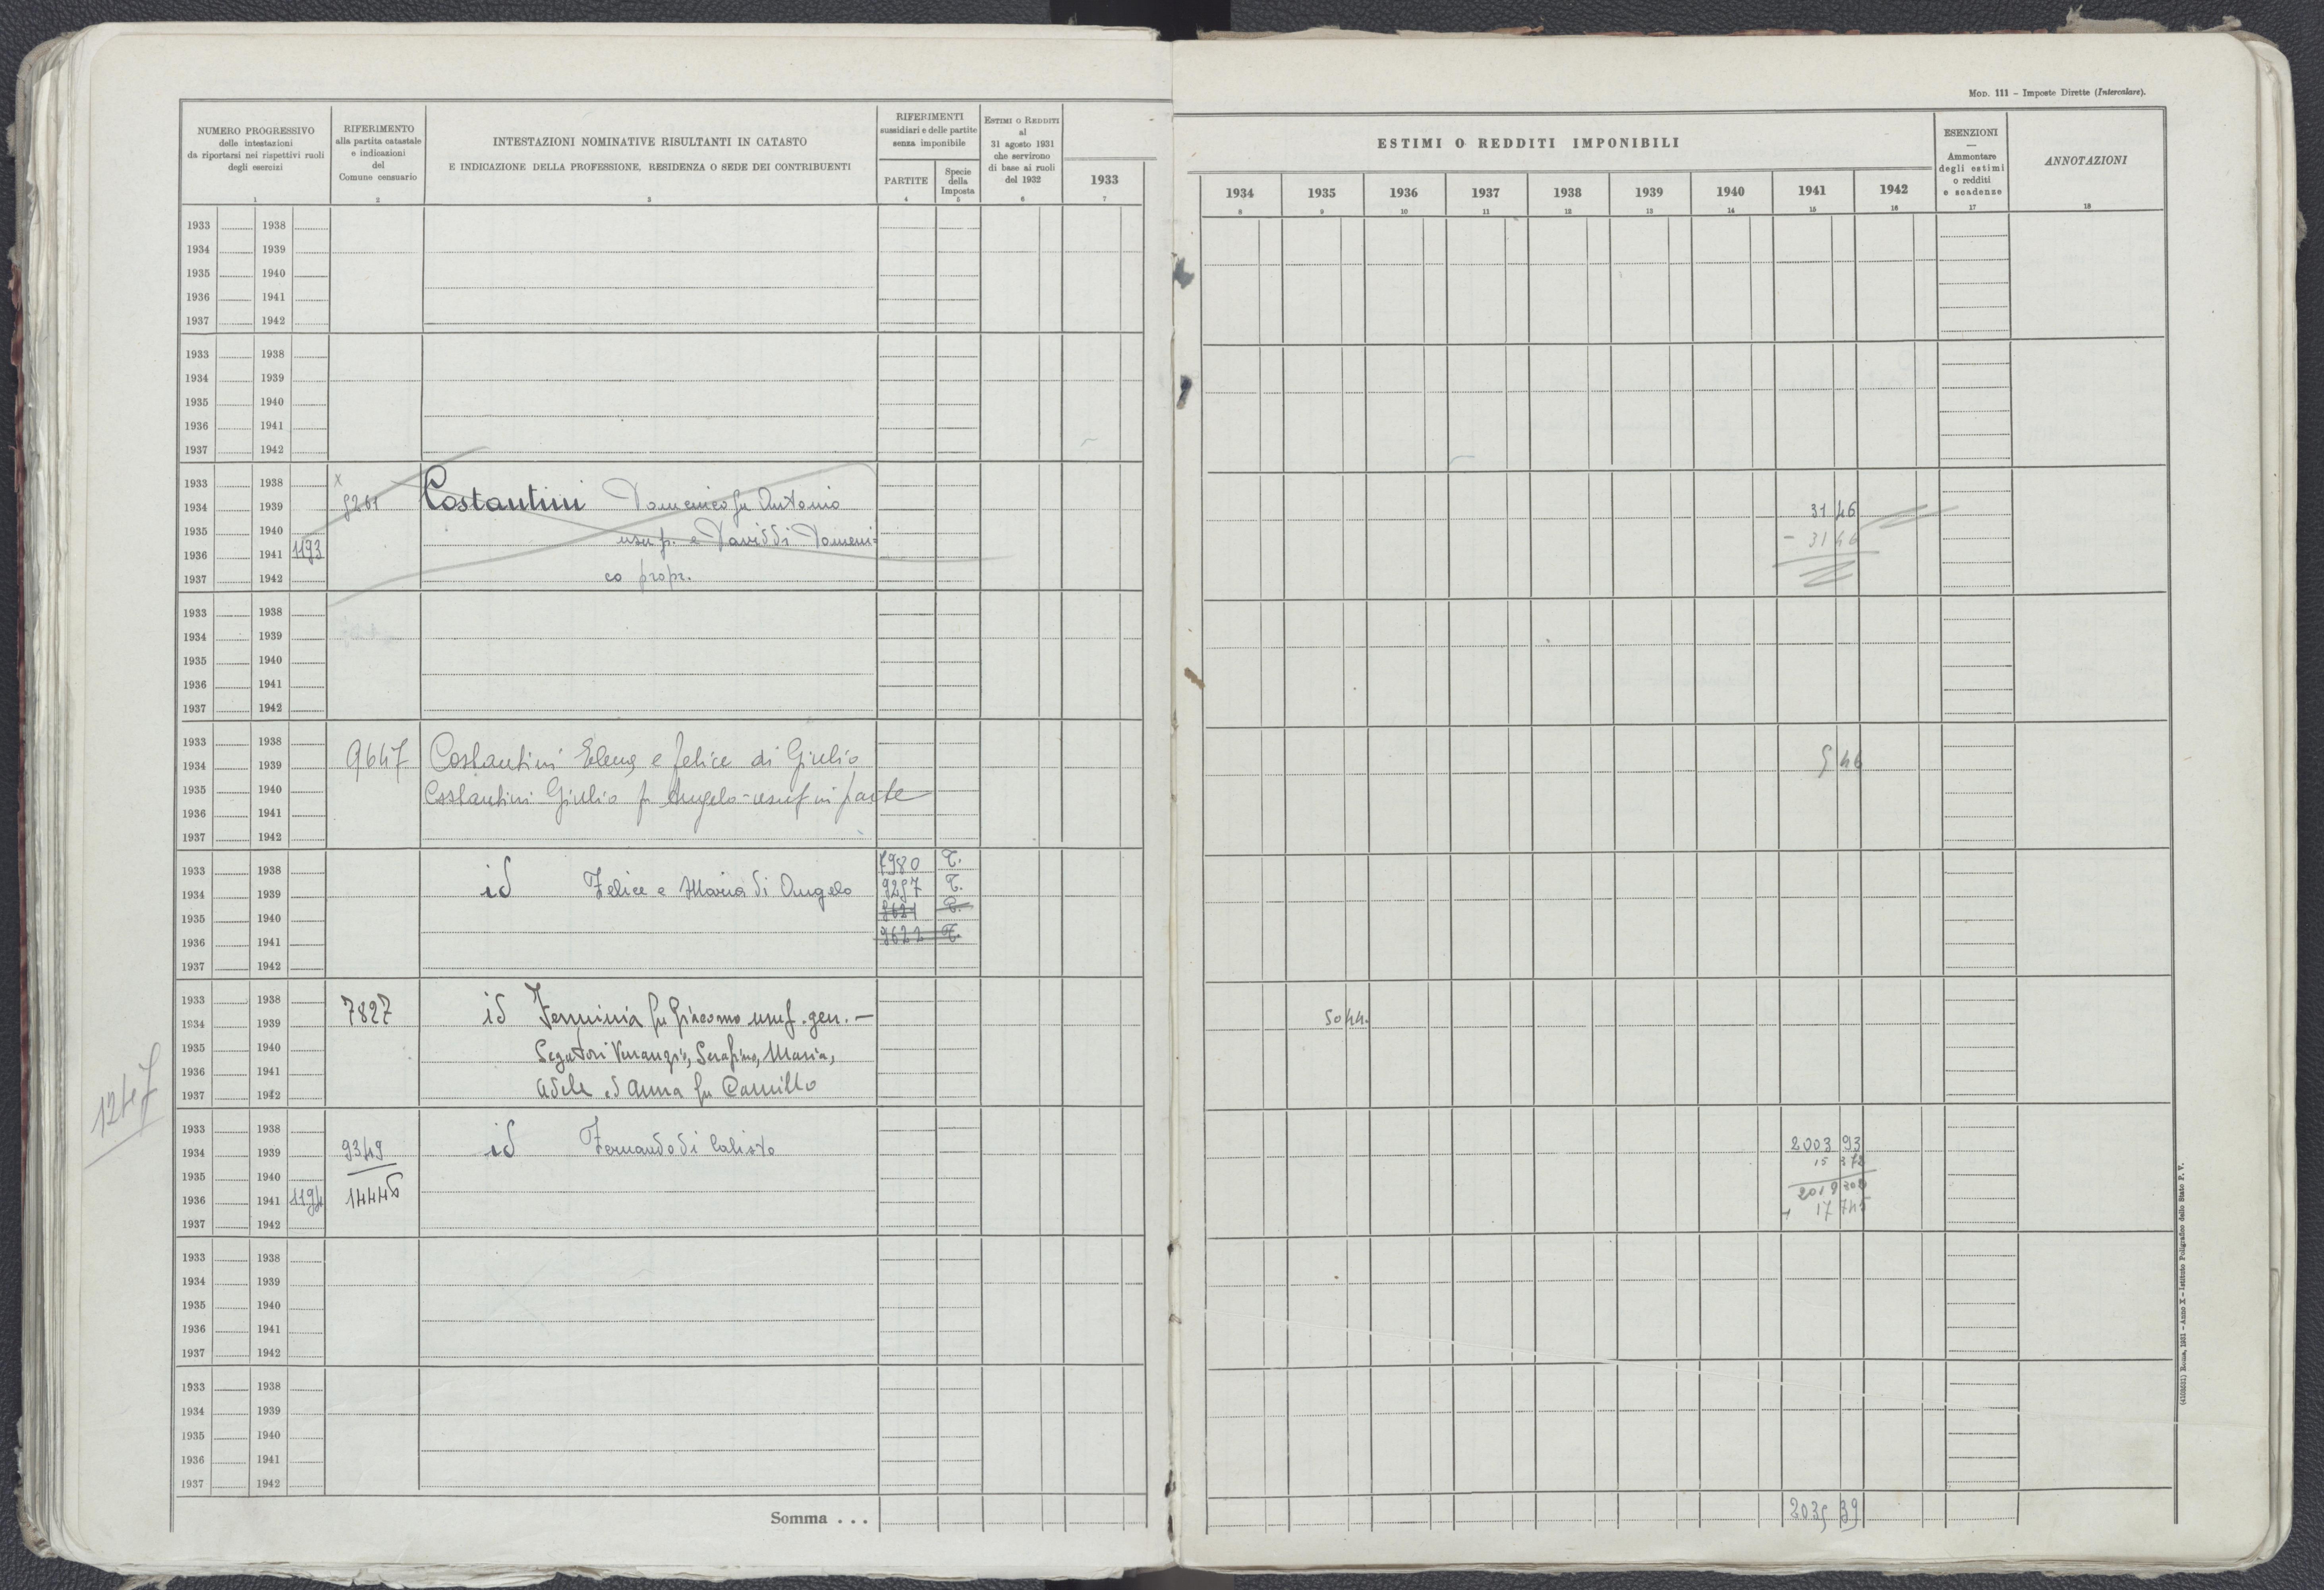 Mod. 111 – Imposte Dirette (Intercalare).
NUMERO PROGRESSIVO
delle intestazioni
da riportarsi nei rispettivi ruoli
degli esercizi
RIFERIMENTO
alla partita catastale
e indicazioni
del
Comune censuario
INTESTAZIONI NOMINATIVE RISULTANTI IN CATASTO
E INDICAZIONE DELLA PROFESSIONE, RESIDENZA O SEDE DEI CONTRIBUENTI
RIFERIMENTI
sussidiari e delle partite
senza imponibile
PARTITE
Specie
della
Imposta
Estimi o Redditi
al
31 agosto 1931
che servirono
di base ai ruoli
del 1932
ESTIMI O REDDITI IMPONIBILI
1933 1934 1935 1936 1937 1938 1939 1940 1941 1942
ESENZIONI
—
Ammontare
degli estimi
o redditi
e scadenze
ANNOTAZIONI
1 2 3 4 5 6 7 8 9 10 11 12 13 14 15 16 17 18
1933 1938
1934 1939
1935 1940
1936 1941
1937 1942
1933 1938
1934 1939
1935 1940
1936 1941
1937 1942
1933 1938 x
1934 1939 9261 Costantini Domenico fu Antonio 31 46
1935 1940 usuf. e David di Domeni= - 31 46
1936 1941 1193
1937 1942 co propr.
1933 1938
1934 1939
1935 1940
1936 1941
1937 1942
1933 1938
1934 1939 9647 Costantini Elena e Felice di Giulio 5 46
1935 1940 Costantini Giulio fu Angelo - usuf in parte
1936 1941
1937 1942
1933 1938 7980 T.
1934 1939 id Felice e Maria di Angelo 9257 T.
1935 1940 9621 T.
1936 1941 9622 T.
1937 1942
1933 1938
1934 1939 7827 id Ferminia fu Giacomo usuf. gen. — 50 44.
1935 1940 Segatori Venanzio, Serafino, Maria,
1936 1941
1937 1942 Adele ed Anna fu Camillo
1247
1933 1938
1934 1939 9349 id Fernando di Calisto 2003 93
1935 1940 15 372
1936 1941 1194 14446 2019 302
1937 1942 + 17 745
1933 1938
1934 1939
1935 1940
1936 1941
1937 1942
1933 1938
1934 1939
1935 1940
1936 1941
1937 1942
Somma . . . 2035 39
(4103531) Roma, 1931 – Anno X – Istituto Poligrafico dello Stato P. V.